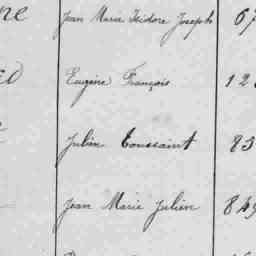 Jean Marie Isidore Joseph 67
Eugène François 12
Julien Toussaint 83
Jean Marie Julien 849